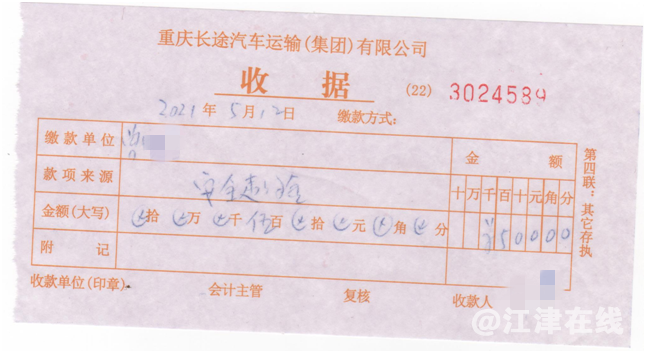 重庆长途汽车运输(集团)有限公司
收 据
(22) 3024589
2021年5月12日 缴款方式:
缴款单位
金 额
款项来源 安全
十万千百十元角分
金额(大写) 拾 万 千 伍百 拾 元 角 分
¥50000
附 记
收款单位(印章) 会计主管 复核 收款人
第四联：其它存执
@江津在线